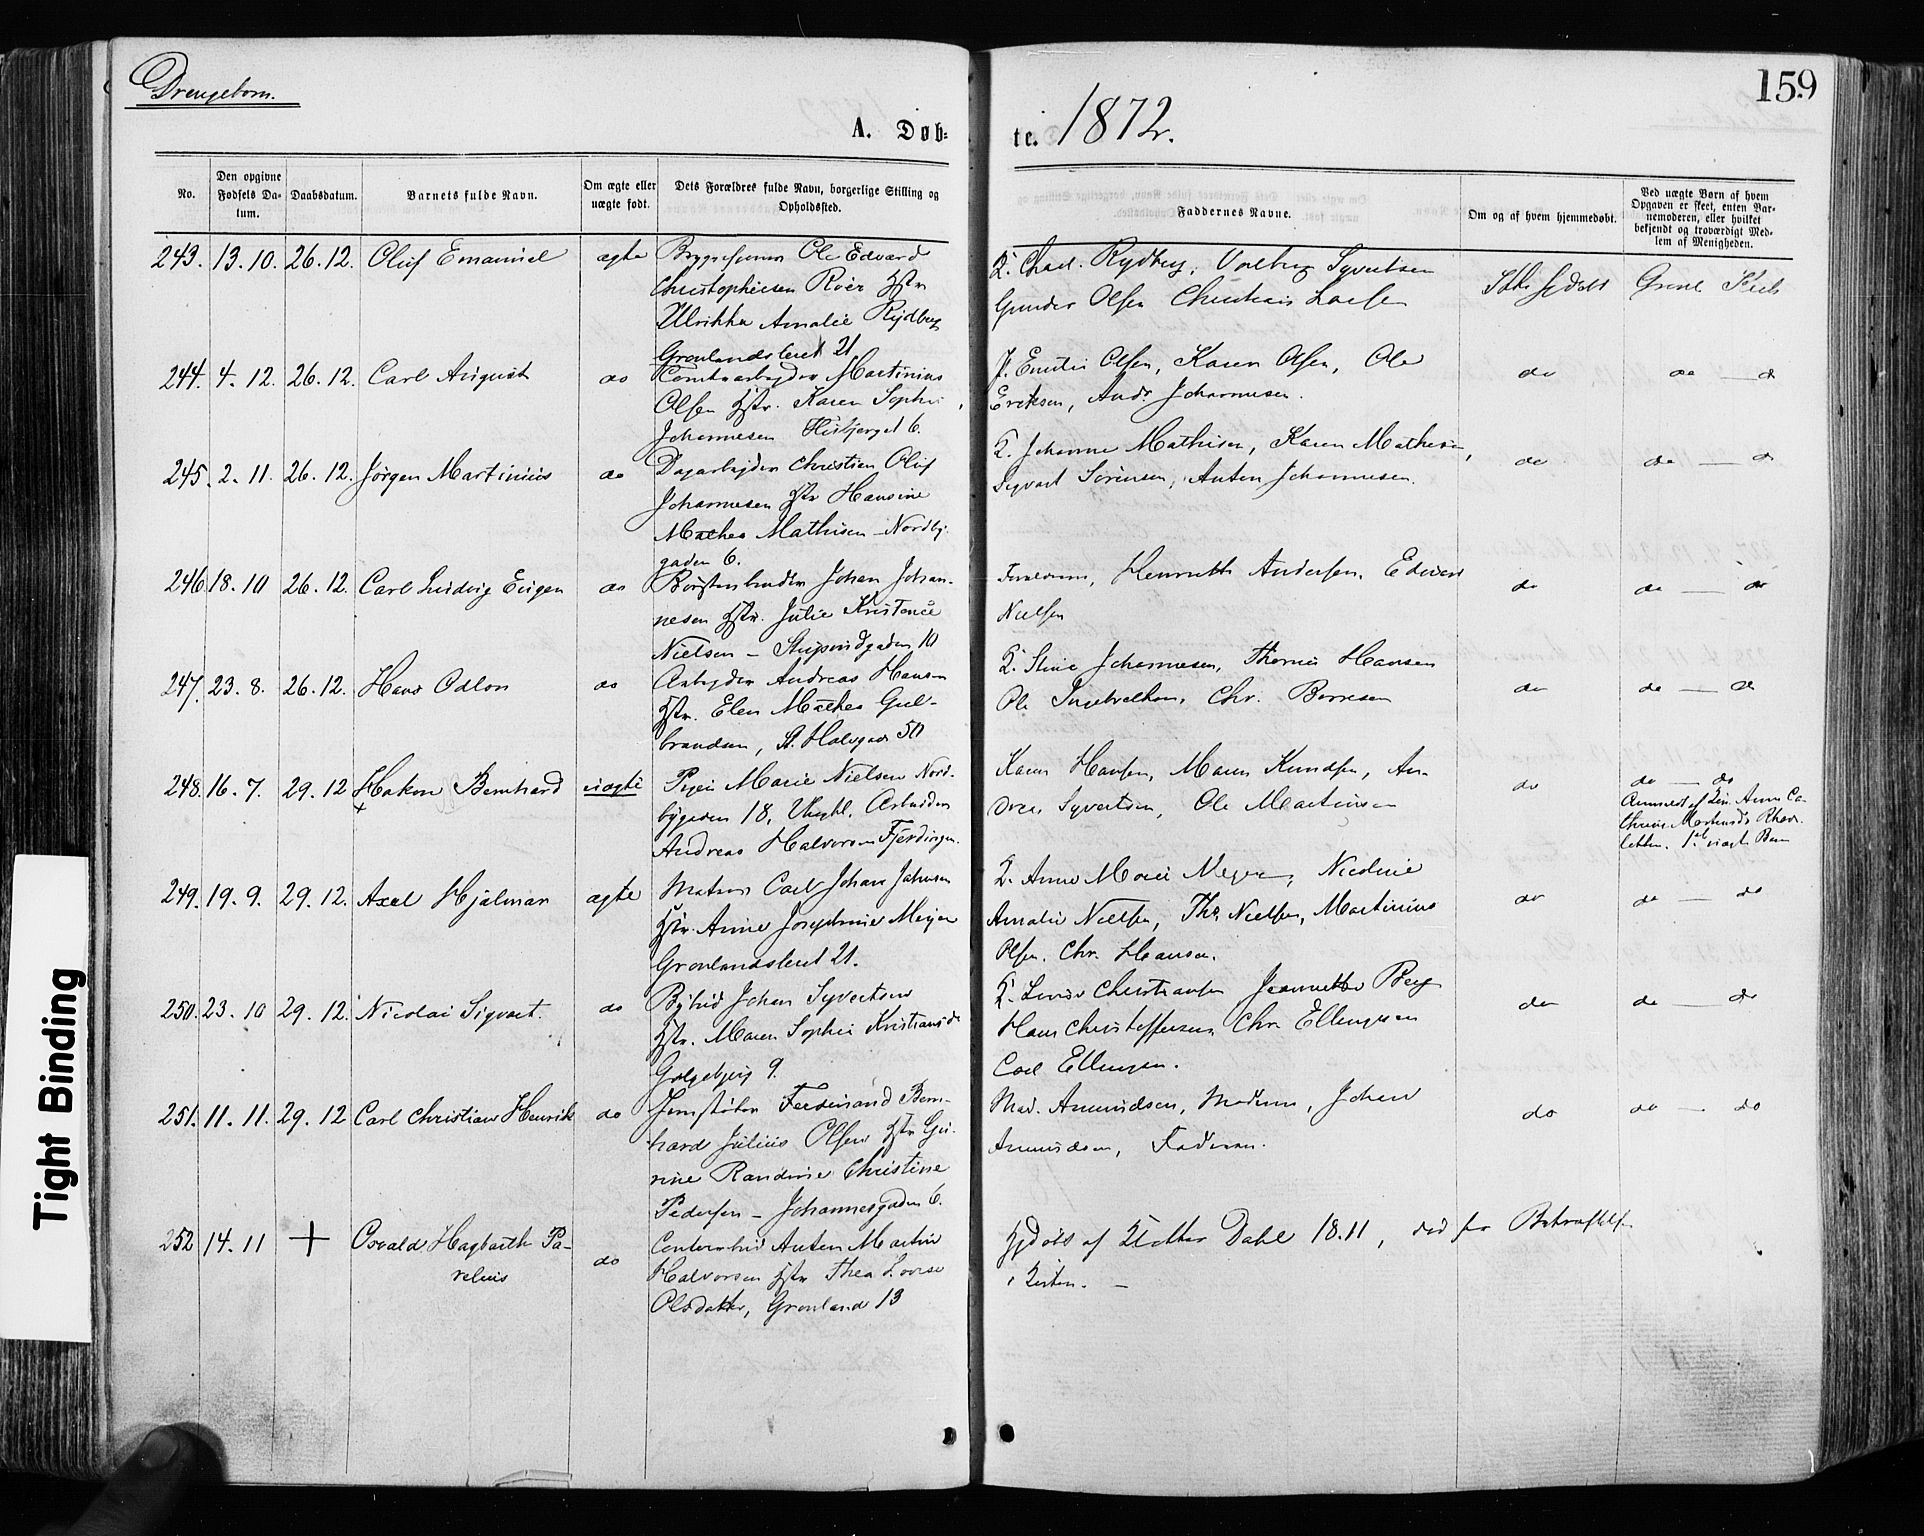 Drengebørn.
159
A. Døb-
te. 1872.
No.
Den opgivne Fødsels Da-tum.
Daabsdatum.
Barnets fulde Navn.
Om ægte eller uægte født.
Dets Forældres fulde Navn, borgerlige Stilling og Opholdssted.
Faddernes Navne.
Om og af hvem hjemmedøbt.
Ved uægte Børn af hvem Opgaven er skeet, enten Bar-nemoderen, eller hvilket bekjendt og troværdigt Med-lem af Menigheden.
243. 13.10. 26.12. Oluf Emanuel ægte
Ole Edvard
Christophersen Roer Hstr
Ulrikke Amalie Rydberg
Grønlandsleret 21
K. Charl. Rydberg, Valborg Syvertsen
Gunder Olsen Christian Larsen
Ikke hjdøbt
244. 4.12. 26.12. Carl August do
Tomtearbeider Martinius
Olsen Hstr. Karen Sophie
Johannesen
J. Emilie Olsen, Karen Olsen, Ole
Eriksen, Andr. Johannesen.
do
do — do
245. 2.11. 26.12. Jørgen Martinius do
Dagarbejder Christian Oluf
Johannesen Hstr Hansine
Mathea Mathisen - Nordby-
gaden 6.
K. Johanne Mathisen, Karen Mathisen,
Sigvart Sørensen, Anton Johannesen.
do
do — do
246 18.10 26.12. Carl Ludvig Eugen do
Børstenbinder Johan Johan-
nesen Hstr. Julie Kristence
Nielsen - Stupinsdgaden 10
Forældrene, Henriette Andersen, Edvard
Nielsen
do
do — do
247. 23.8. 26.12. Hans Odlon do
Arbejder Andreas Hansen
Hstr. Elen Mathea Gul-
brandsen, St. Halvgade 50
K. Stine Johannesen, Thorine Hansen
Ole Ingebrethsen, Chr. Børresen
do
do — do
248. 16.7. 29.12 Hakon Bernhard uægte
Pige Marie Nielsen Nord-
bygaden 18, Ungkl. Arbeider
Andreas Halvorsen Fjerdingen.
Karen Hansen, Maren Knudsen, An-
dreas Syvertsen, Ole Martinsen
do
do — do
Anmeldt af Anne Ca-
thrine
1ste uægte Barn
249. 19.9. 29.12. Axel Hjalmar ægte
Matros Carl Johan Johnsen
Hstr. Anne Josephine Meyer
Grønlandsleret 21.
K. Anne Marie Meyer, Nicoline
Amalie Nielsen, Ths. Nielsen, Martinius
Olsen, Chr. Hansen.
do
do — do
250. 23.10 29.12. Nicolai Sigvart. do
Johan Syvertsen
Hstr. Maren Sophie Kristiansd.
Galgebjerg 9.
K. Lovise Christiansen Jeannette Berg
Hans Christoffersen, Chr. Ellingsen
Carl Ellingsen.
do
do — do
251. 11.11. 29.12 Carl Christian Henrik do
Jernstøber Ferdinand Bern-
hard Julius Olsen Hstr Gu-
rine Randine Christine
Pedersen - Johannesgaden 6.
Mad. Amundsen, Moderen, Johan
Amundsen, Faderen.
do
do — do
252 14.11 + Osvald Hagbarth Pa-
relius
do
Anton Martin
Halvorsen Hstr Thea Lovise
Olsdatter, Grønland 13
Hjdøbt af Dahl 18.11, død før Bekræftelsen
i Kirken. —
Tight Binding